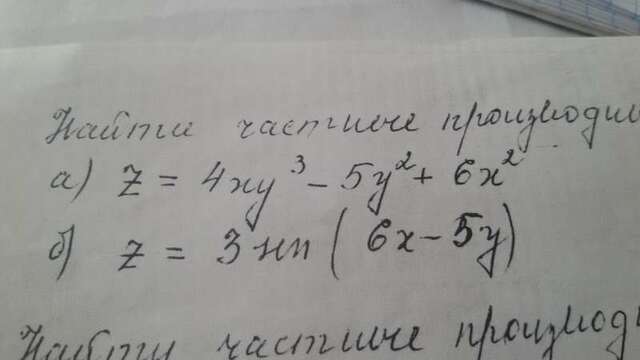 Найти частные производны
а) z = 4xy³ - 5y² + 6x²
б) z = 3 sin ( 6x - 5y )
Найти частные производн